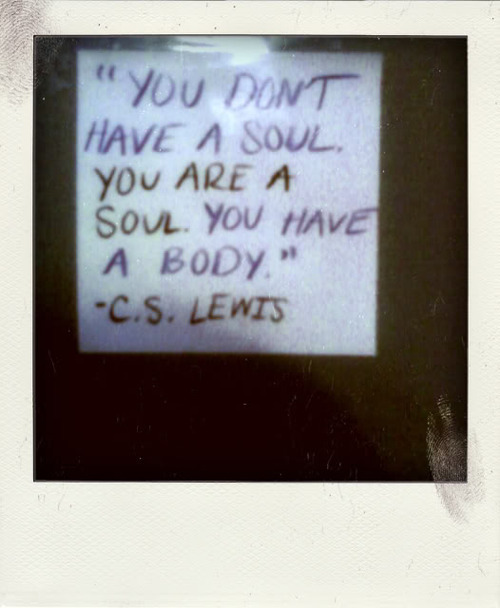 "YOU DON'T
HAVE A SOUL.
YOU ARE A
SOUL. YOU HAVE
A BODY."
-C.S. LEWIS